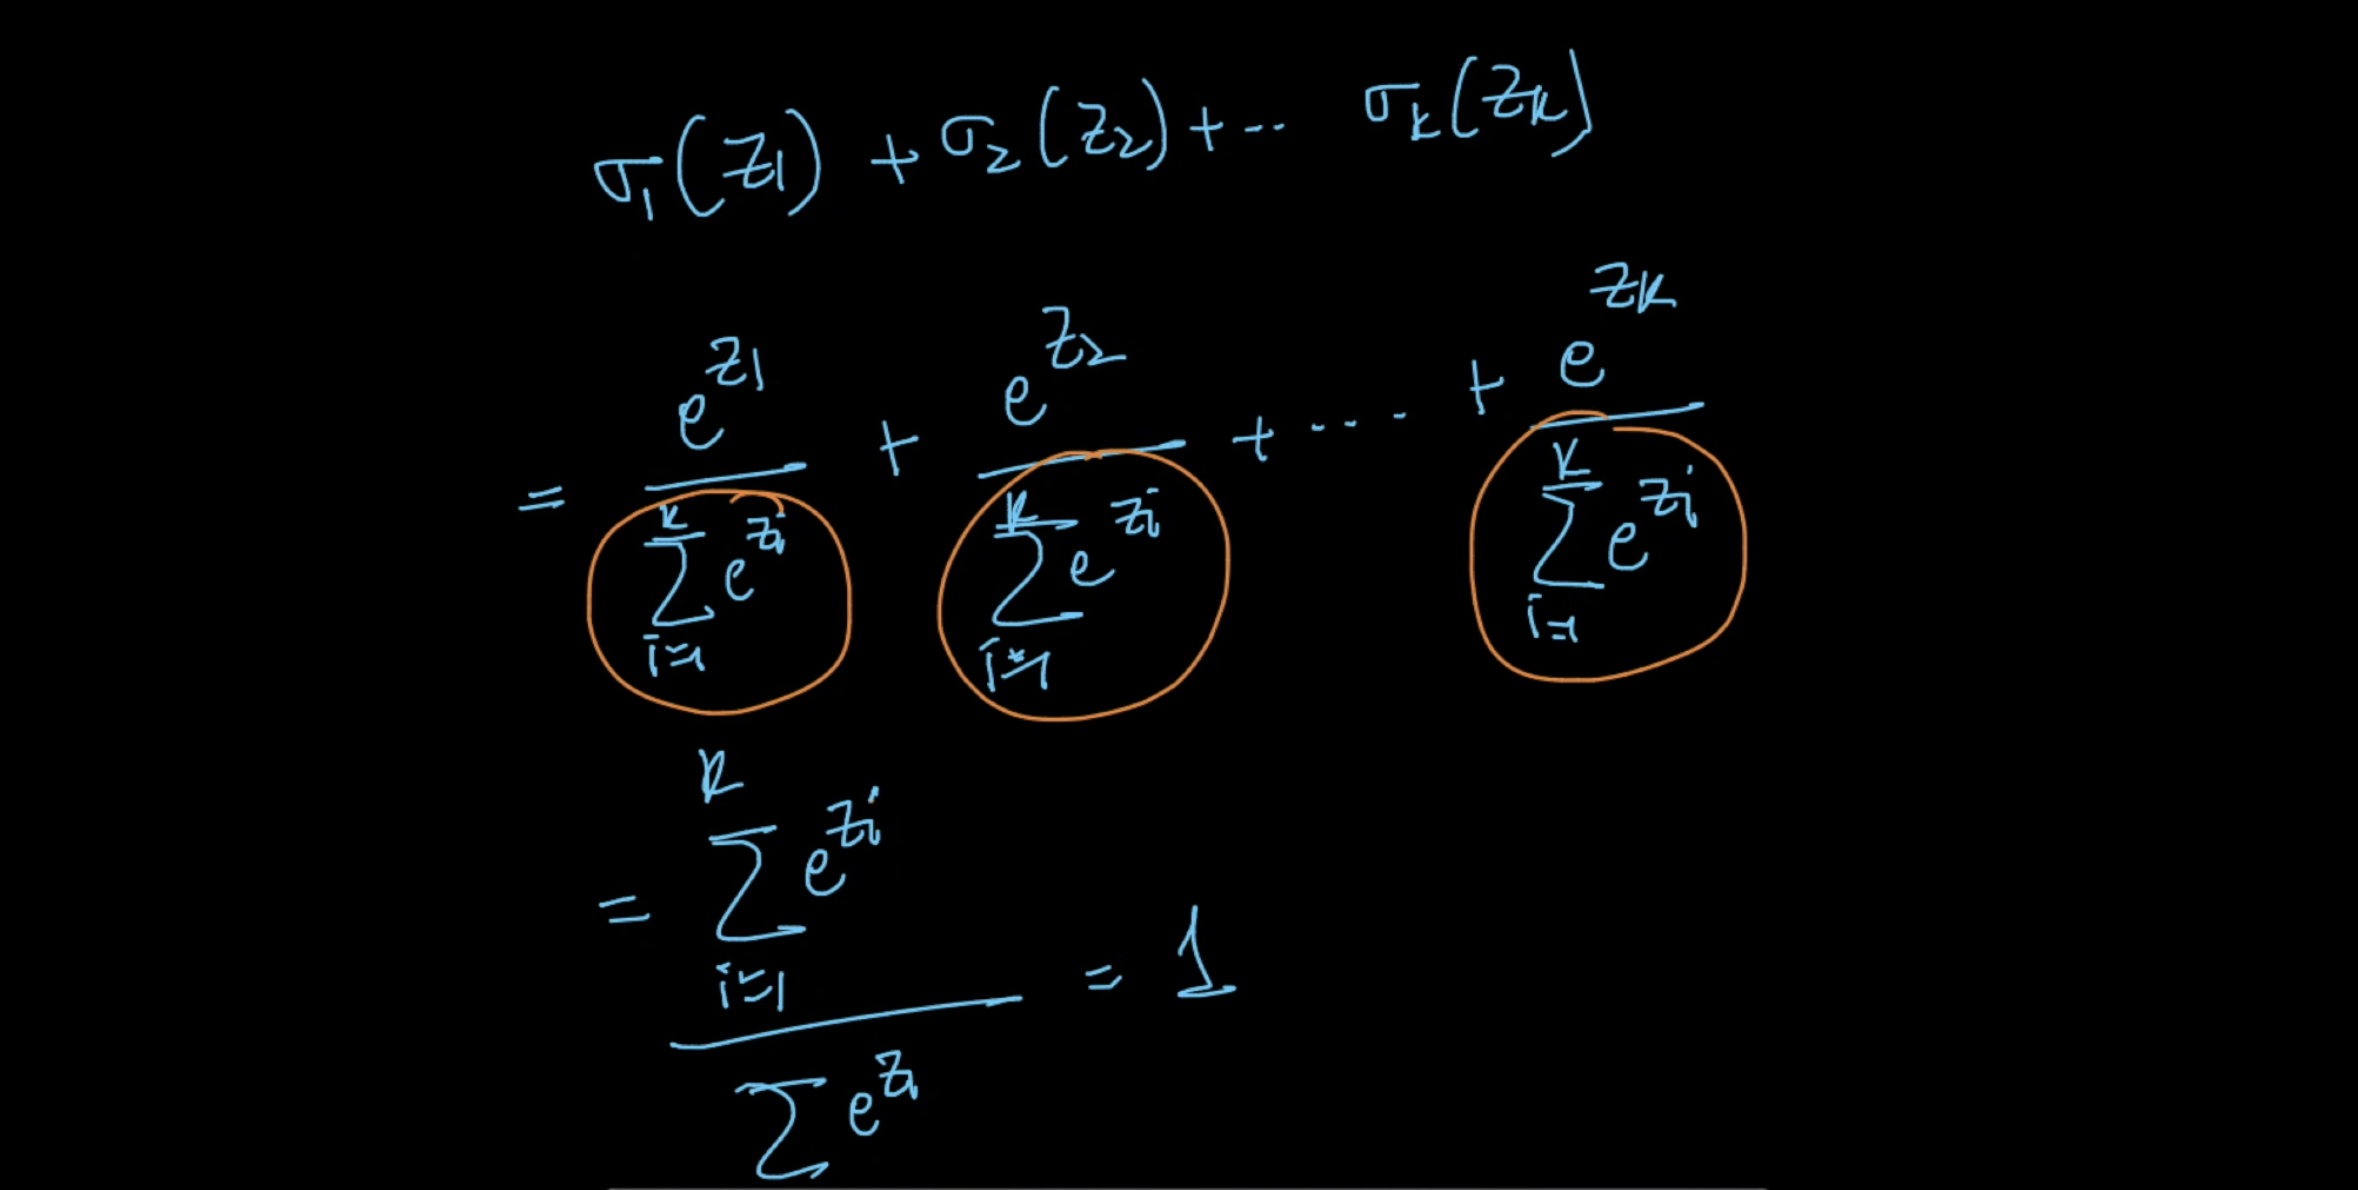 σ₁(z₁) + σ₂(z₂) + ... σₖ(zₖ)
= e^{z₁} / ∑_{i=1}^{k} e^{zᵢ} + e^{z₂} / ∑_{i=1}^{k} e^{zᵢ} + .... + e^{zₖ} / ∑_{i=1}^{k} e^{zᵢ}
= ∑_{i=1}^{k} e^{zᵢ} / ∑ e^{zᵢ} = 1